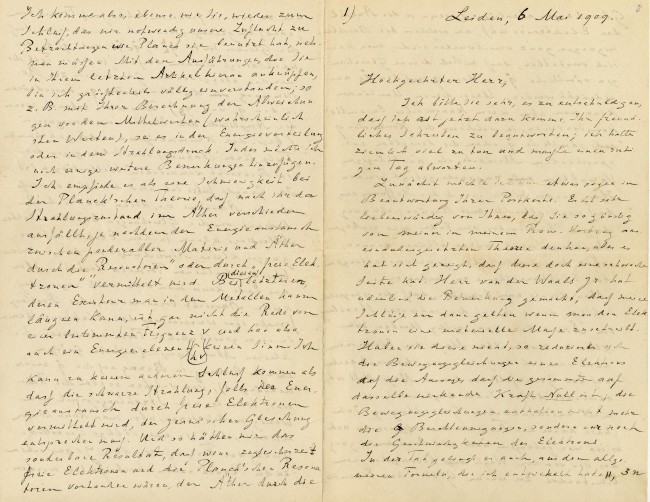 Ich komme also, ebenso wie Sie, wieder zum
Schluss, dass wir notwendig unsere Zuflucht zu
Betrachtungen wie Planck sie benutzt hat, neh-
men müssen. Mit den Ausführungen, die Sie
in Ihrem letzten Artikel hieran anknüpfen,
bin ich grösstenteils völlig einverstanden; so
z. B. mit Ihrer Berechnung der Abweichun-
gen von den Mittelwerten (wahrscheinlich-
sten Werten), sei es in der Energieverteilung
oder in dem Strahlungsdruck. Indes möchte ich
noch einige weitere Bemerkungen hinzufügen.
Ich empfinde es als eine Schwierigkeit bei
der Planck'schen Theorie, dass nach ihr der
Strahlungszustand im Äther verschieden
ausfällt, je nachdem der Energieaustausch
zwischen ponderabler Materie und Äther
durch die "Resonatoren" oder durch "freie Elek-
tronen" vermittelt wird. Bei diesen letzteren,
deren Existenz man in den Metallen kaum
läugnen kann, gar nicht die Rede von
einer bestimmten Frequenz ν und hat also
auch ein Energieelement hν keinen Sinn. Ich
kann zu keinem andern Schluss kommen als
dass die schwarze Strahlung, falls der Ener-
gieaustausch durch freie Elektronen
vermittelt wird, der Jeans'schen Gleichung
entsprechen muss. Und so hätten wir das
sonderbare Resultat, dass wenn zugleich
freie Elektronen und die Planck'schen Resona-
toren vorhanden wären, der Äther durch die
1)
Leiden, 6 Mai 1909.
Hochgeehrter Herr,
Ich bitte Sie sehr, es zu entschuldigen,
dass ich erst jetzt dazu komme, Ihr freund-
liches Schreiben zu beantworten; ich hatte
ziemlich viel zu tun und musste einen ruhi-
gen Tag abwarten.
Zunächst möchte ich nun etwas sagen in
Beantwortung Ihrer Postkarte. Es ist sehr
liebenswürdig von Ihnen, dass Sie so günstig
von meiner in meinem Röm. Vortrag aus-
einandergesetzten Theorie denken, aber es
hat sich gezeigt, dass diese doch eine schwache
Seite hat. Herr van der Waals Jr. hat
nämlich die Bemerkung gemacht, dass meine
Schlüsse nur dann gelten wenn man den Elek-
tronen eine materielle Masse zuschreibt.
Haben sie diese nicht, so reduzieren sich
die Bewegungsgleichungen eines Elektrons
auf die Aussage, dass die gesamte auf
dasselbe wirkende Kraft Null ist, die
Bewegungsgleichungen enthalten nicht mehr
die Beschleunigungen, sondern nur noch
die Geschwindigkeiten des Elektrons.
In der Tat gelangt er auch, aus den allge-
meinen Formeln, die ich entwickelt hatte, zu